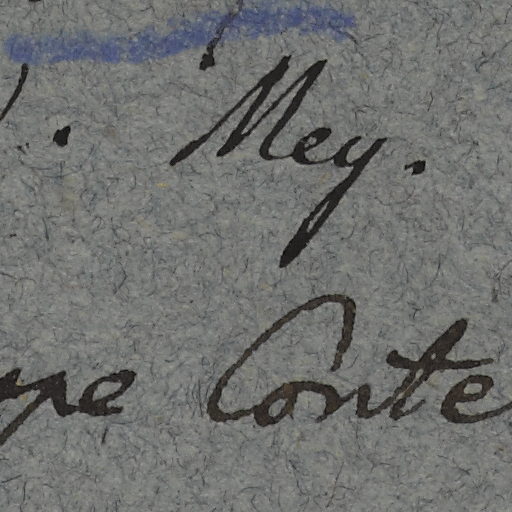 . Mey.
Conte